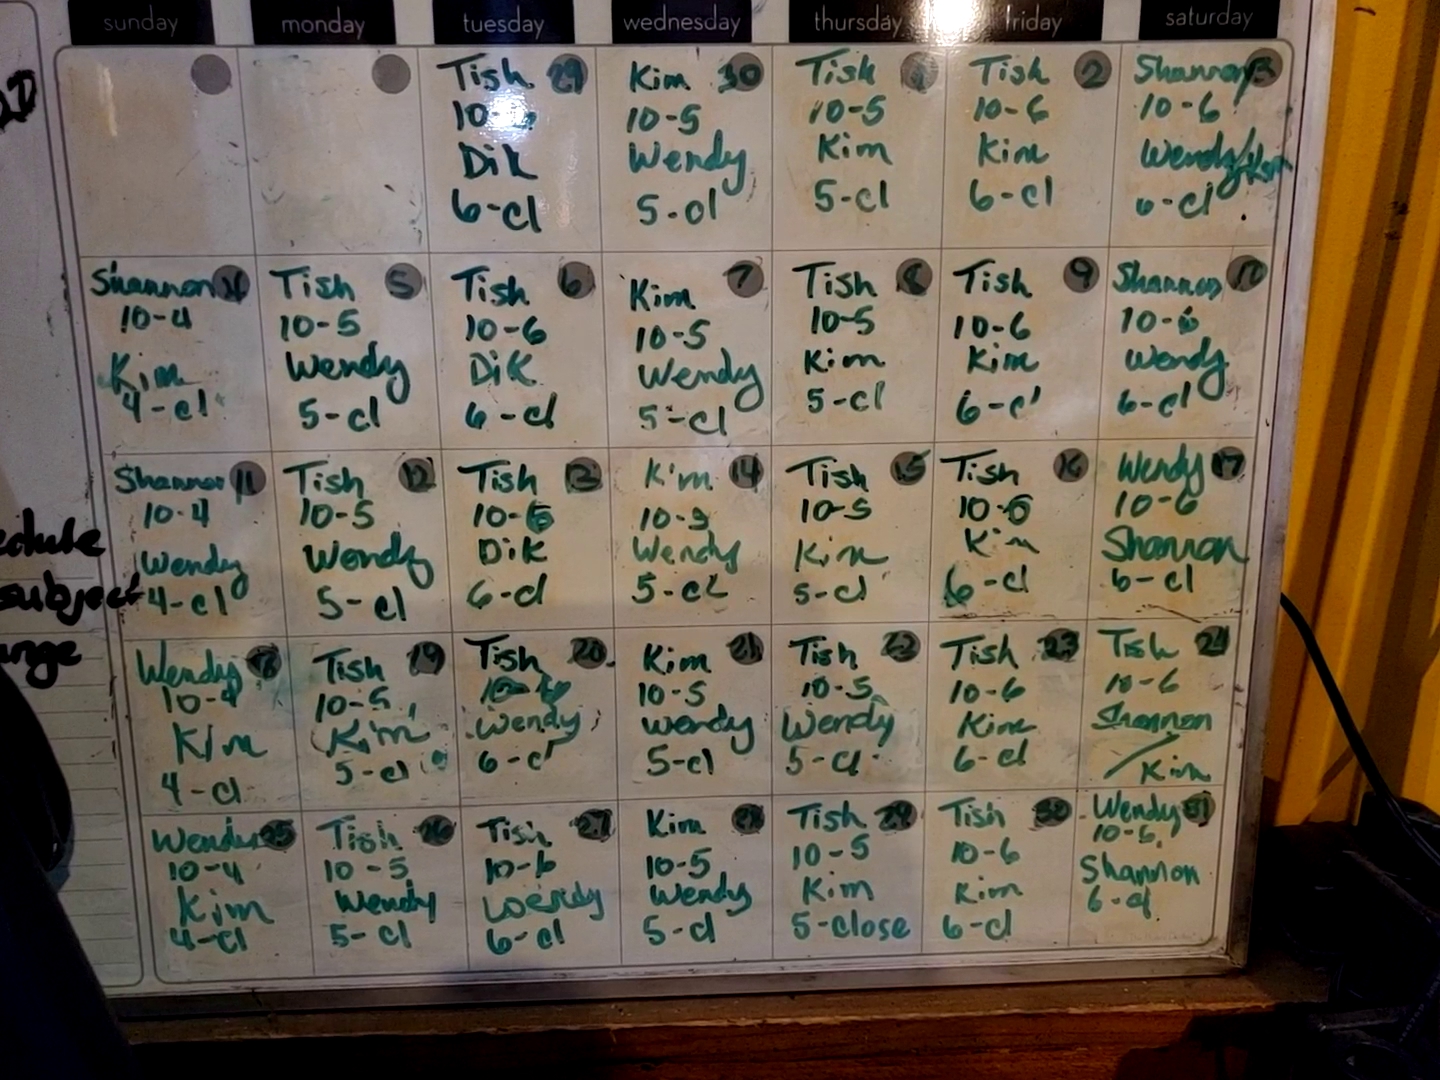 sunday monday tuesday wednesday thursday friday saturday
Tish 29
10-6
Dik
6-cl
Kim 30
10-5
Wendy
5-cl
Tish 1
10-5
Kim
5-cl
Tish 2
10-6
Kim
6-cl
Shannon 3
10-6
Wendy/Kim
6-cl
Shannon 4
10-4
Kim
4-cl
Tish 5
10-5
Wendy
5-cl
Tish 6
10-6
Dik
6-cl
Kim 7
10-5
Wendy
5-cl
Tish 8
10-5
Kim
5-cl
Tish 9
10-6
Kim
6-cl
Shannon 10
10-6
Wendy
6-cl
Shannon 11
10-4
Wendy
4-cl
Tish 12
10-5
Wendy
5-cl
Tish 13
10-6
Dik
6-cl
Kim 14
10-5
Wendy
5-cl
Tish 15
10-5
Kim
5-cl
Tish 16
10-6
Kim
6-cl
Wendy 17
10-6
Shannon
6-cl
edule
subject
ange
Wendy 18
10-4
Kim
4-cl
Tish 19
10-5
Kim
5-cl
Tish 20
Wendy
6-cl
Kim 21
10-5
Wendy
5-cl
Tish 22
10-5
Wendy
5-cl
Tish 23
10-6
Kim
6-cl
Tish 24
10-6
Shannon
/Kim
Wendy 25
10-4
Kim
4-cl
Tish 26
10-5
Wendy
5-cl
Tish 27
10-6
Wendy
6-cl
Kim 28
10-5
Wendy
5-cl
Tish 29
10-5
Kim
5-close
Tish 30
10-6
Kim
6-cl
Wendy 31
10-6
Shannon
6-cl